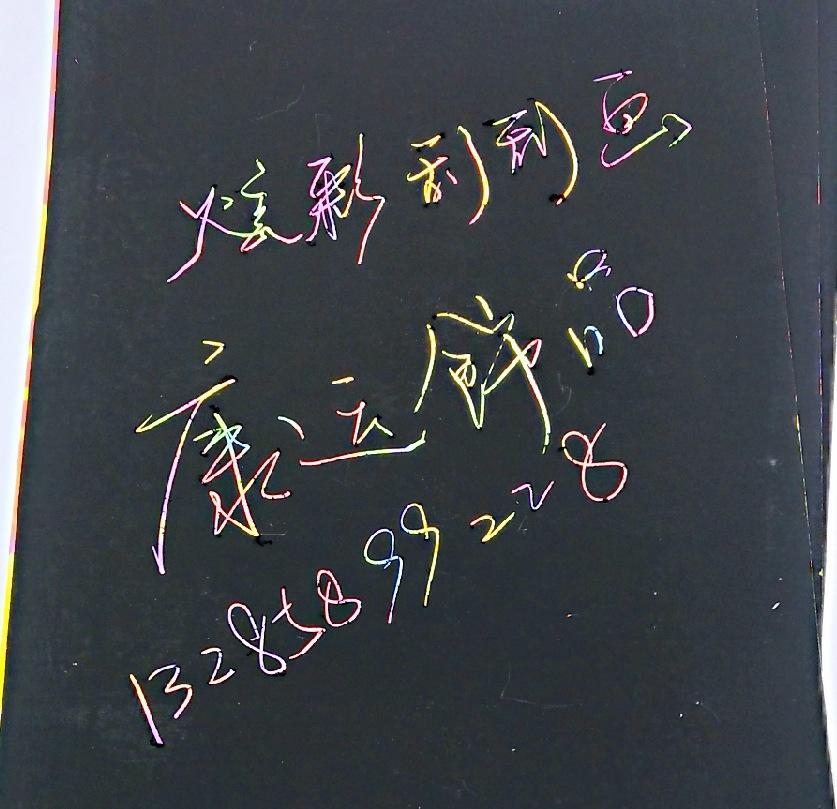 炫彩刮刮画
康运饰品
13285899228